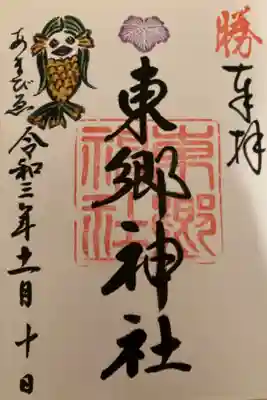 勝
奉拝
東郷神社
東郷神社
あまびゑ
令和三年十一月十日